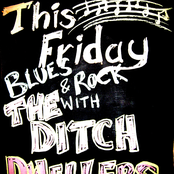 This
Friday
BLUES & ROCK
THE WITH
DITCH
DWELLERS